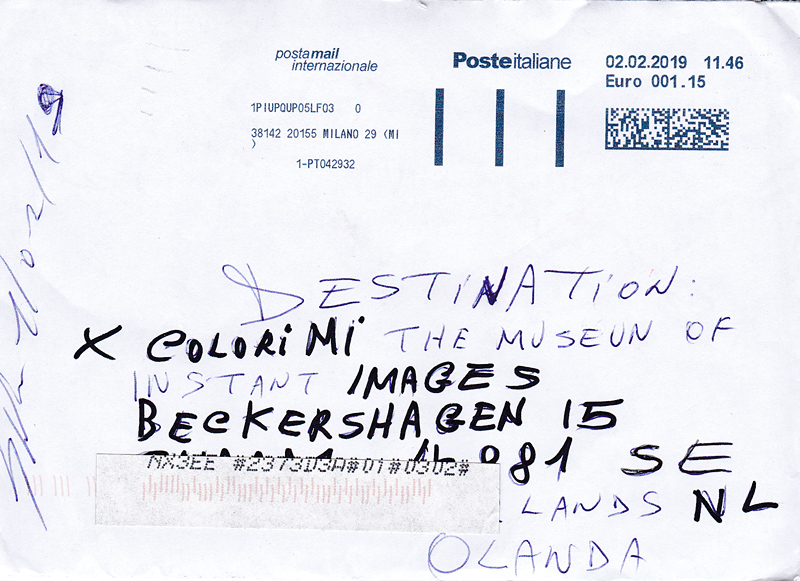 postamail
internazionale
Posteitaliane
02.02.2019 11.46
Euro 001.15
1PIUPQUP05LF03 0
38142 20155 MILANO 29 (MI
)
1-PT042932
DESTINATION:
X COLORiMi THE MUSEUN OF
INSTANT IMAGES
BECKERSHAGEN 15
081 SE
NX3EE #2373D3A#01#0302#
LANDS NL
OLANDA